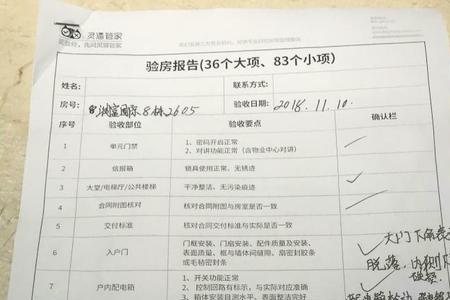 灵遇管家
买套房,先问灵遇管家
验房报告(36个大项、83个小项)
姓名: 联系方式:
房号: 8栋2605 验收日期: 2018.11.10.
序号 验收部位 验收要点 确认栏
1 单元门禁 1、密码开启正常
2、对讲功能正常(含物业中心对讲)
2 信报箱 锁具使用正常、无锈迹
3 大堂/电梯厅/公共楼梯 干净整洁、无污染痕迹
4 合同附图核对 核对合同附图与房室是否一致
5 交付标准 核对合同交付标准与实际是否一致
6 入户门 门框安装、门扇安装、配件质量及安装、
表面质量、框与墙体间缝隙、扇密封胶条
或毛秘密封条
大门下
脱落,内侧
7 户内配电箱 1、开关功能正常
2、控制回路有标示,与实际对应准确
3、箱体安装目测水平、表面整洁完好